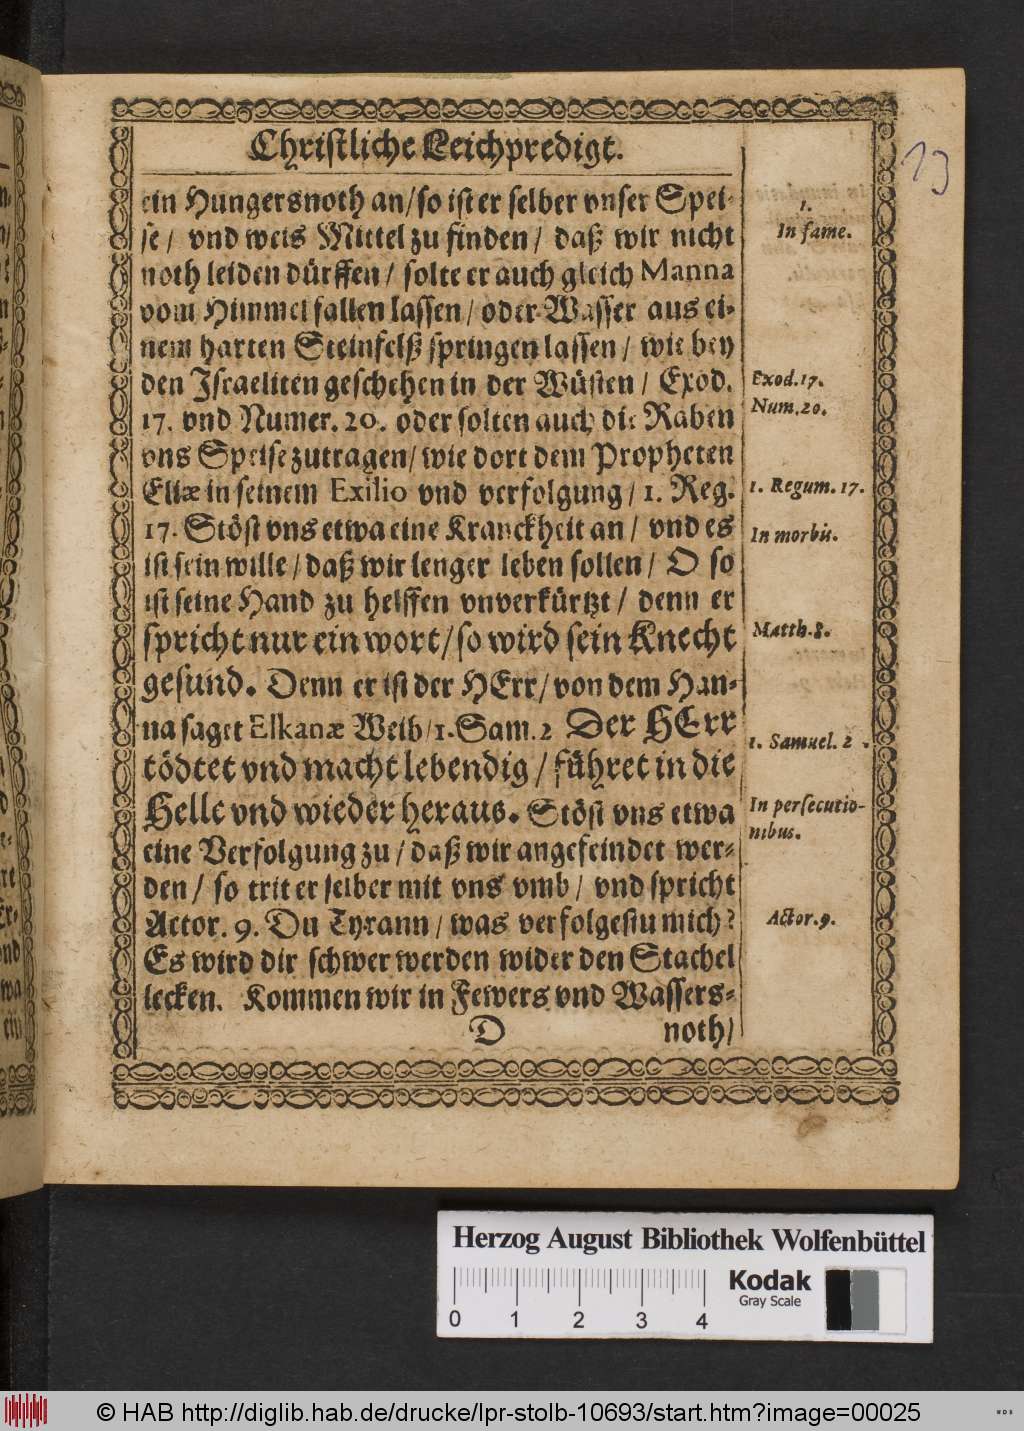 Christliche Leichpredigt.
13
ein Hungersnoth an/so ist er selber vnser Spei-
se/ vnd weis Mittel zu finden/ daß wir nicht
noth leiden dürffen/ solte er auch gleich Manna
vom Himmel fallen lassen/ oder Wasser aus ei-
nem harten Steinfelß springen lassen/ wie bey
den Israeliten geschehen in der Wüsten/ Exod.
17. vnd Numer. 20. oder solten auch die Raben
vns Speise zutragen/ wie dort dem Propheten
Eliæ in seinem Exilio vnd verfolgung/ 1. Reg.
17. Stöst vns etwa eine Kranckheit an/ vnd es
ist sein wille/ daß wir lenger leben sollen/ O so
ist seine Hand zu helffen vnverkürtzt/ denn er
spricht nur ein wort/ so wird sein Knecht
gesund. Denn er ist der HErr/ von dem Han-
na saget Elkanæ Weib/ 1. Sam. 2 Der HErr
tödtet vnd macht lebendig/ führet in die
Helle vnd wieder heraus. Stöst vns etwa
eine Verfolgung zu/ daß wir angefeindet wer-
den/ so trit er selber mit vns vmb/ vnd spricht
Actor. 9. Du Tyrann/ was verfolgestu mich?
Es wird dir schwer werden wider den Stachel
lecken. Kommen wir in Fewers vnd Wassers-
D noth/
1.
In fame.
Exod. 17.
Num. 20.
1. Regum. 17.
In morbis.
Matth. 8.
1. Samuel. 2.
In persecutio-
nibus.
Actor. 9.
Herzog August Bibliothek Wolfenbüttel
0 1 2 3 4
Kodak
Gray Scale
© HAB http://diglib.hab.de/drucke/lpr-stolb-10693/start.htm?image=00025